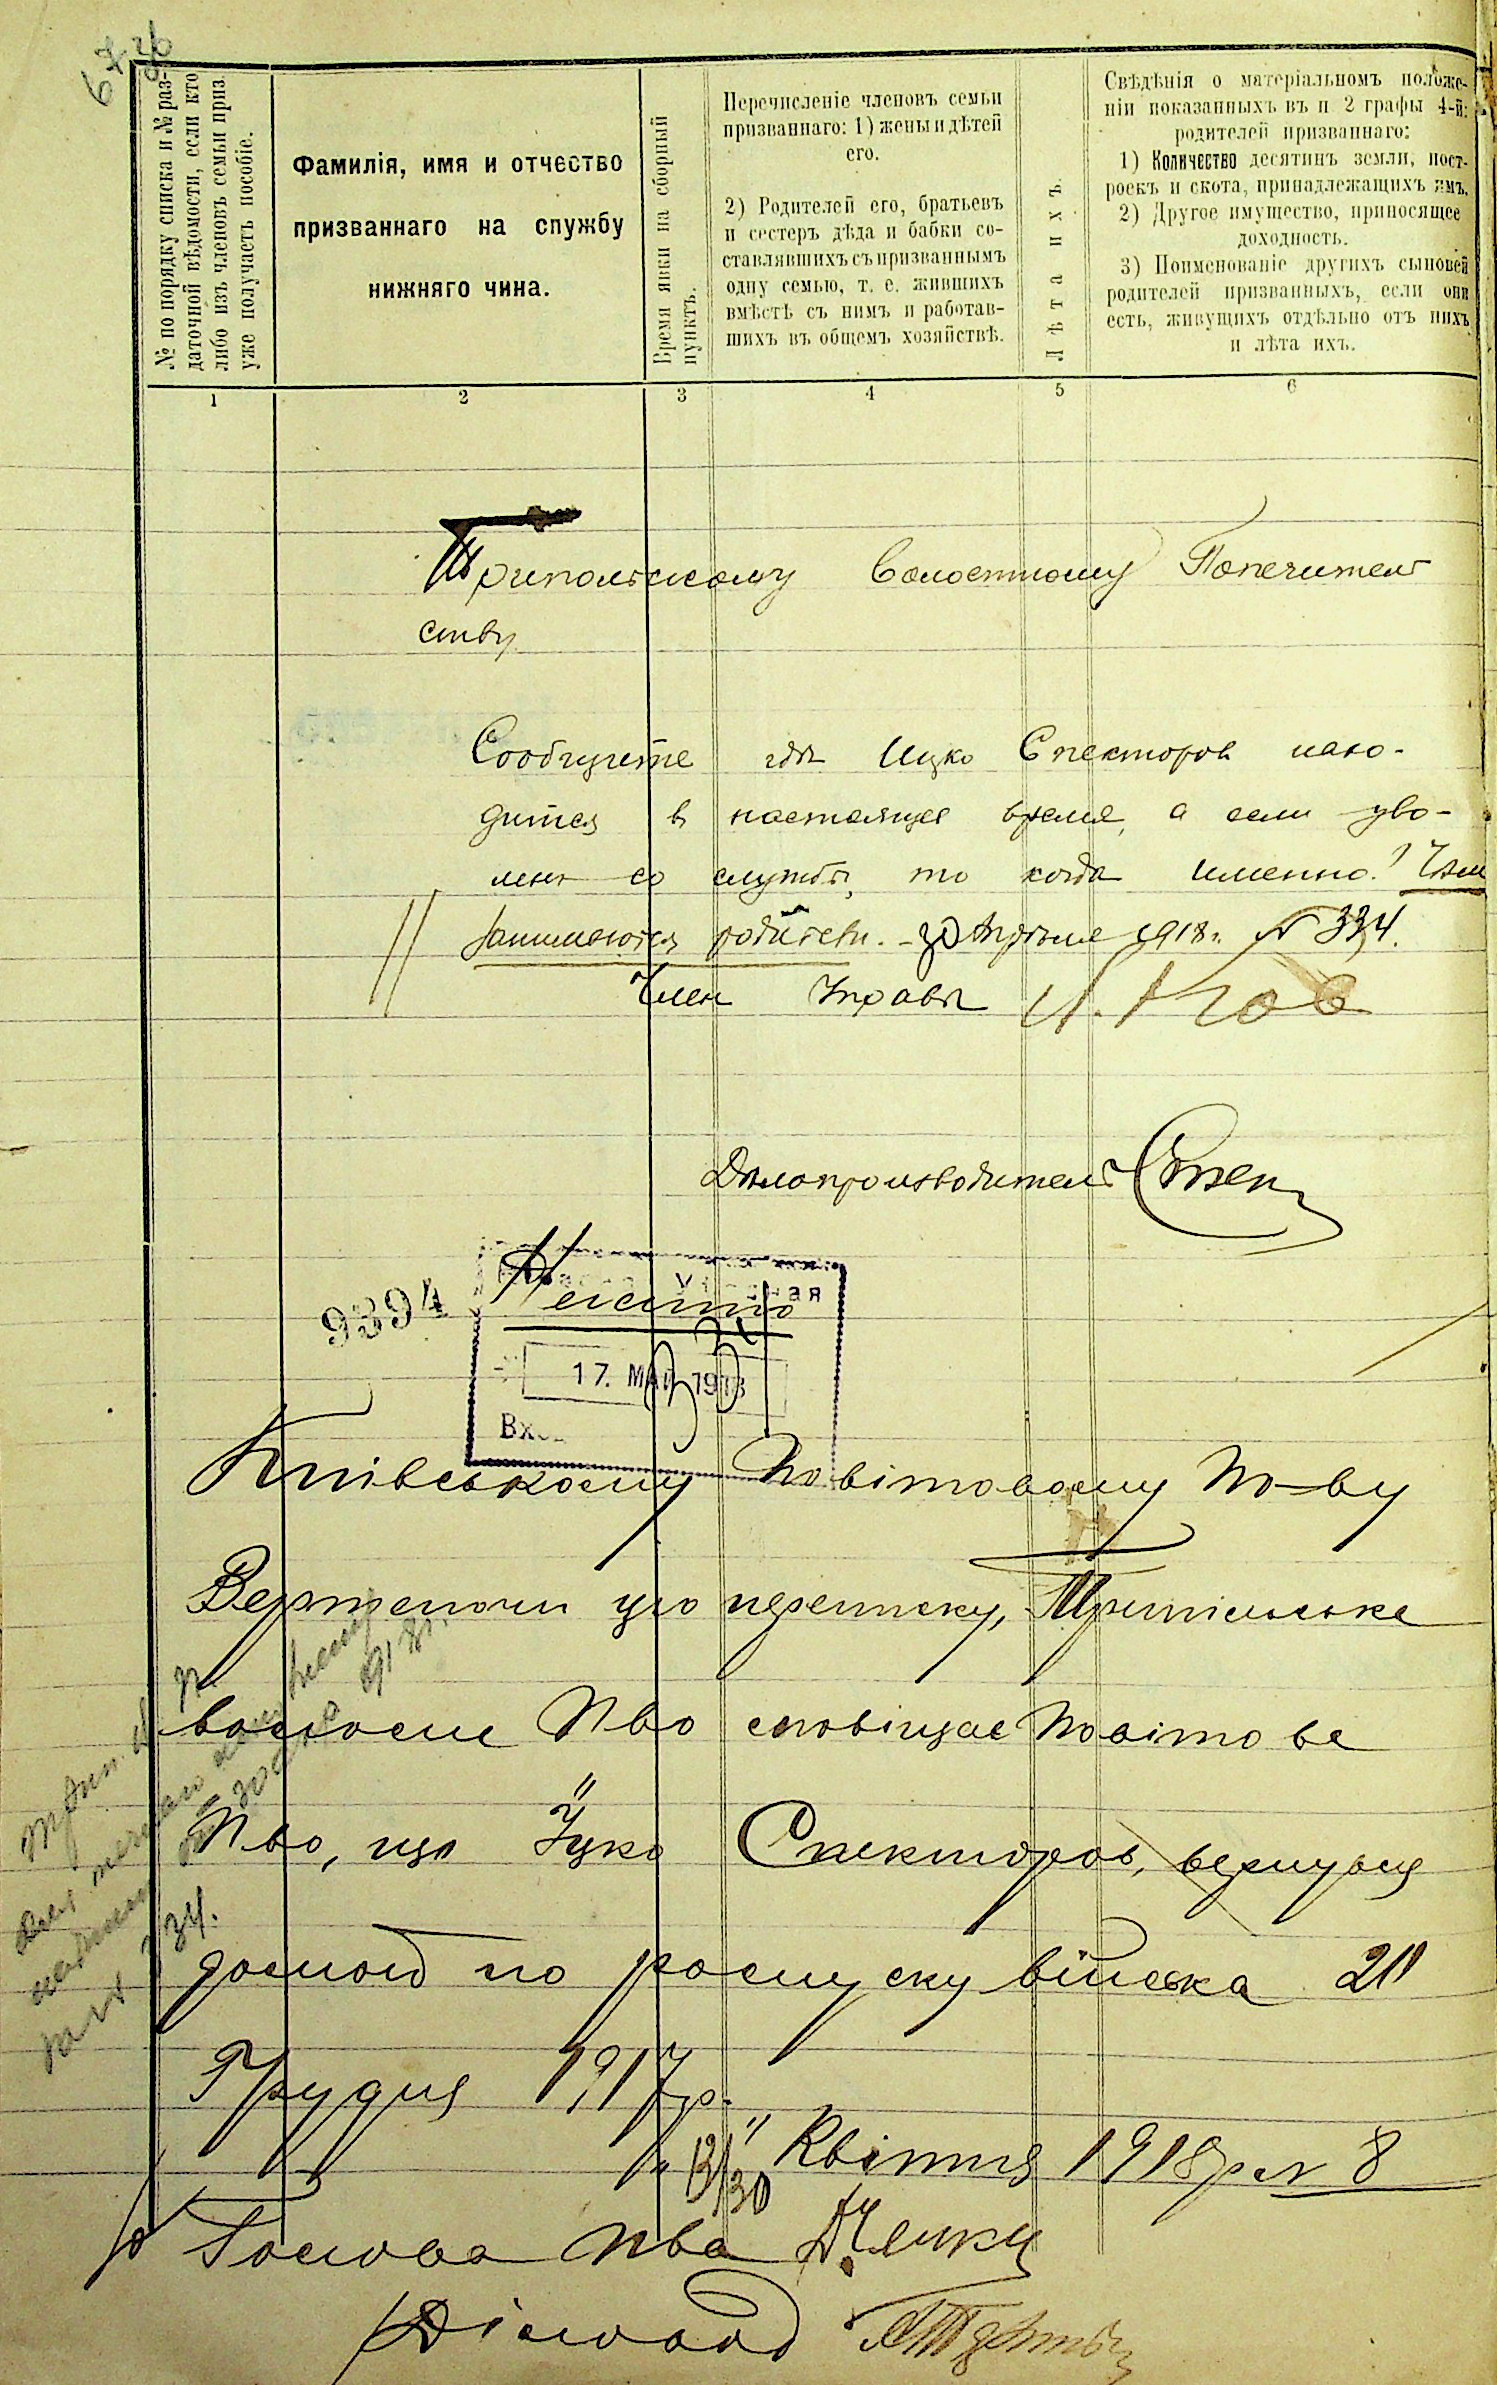 № по порядку списка и № раз-
даточной вѣдомости, если кто
либо изъ членовъ семьи приз.
уже получаетъ пособіе.
Фамилія, имя и отчество
призваннаго на службу
нижняго чина.
Время явки на сборный
пунктъ.
Перечисленіе членовъ семьи
призваннаго: 1) жены и дѣтей
его.
2) Родителей его, братьевъ
и сестеръ дѣда и бабки со-
ставлявшихъ съ призваннымъ
одну семью, т. е. жившихъ
вмѣстѣ съ нимъ и работав-
шихъ въ общемъ хозяйствѣ.
Лѣта ихъ.
Свѣдѣнія о матеріальномъ положе-
ніи показанныхъ въ п 2 графы 4-й:
родителей призваннаго:
1) Количество десятинъ земли, пост-
роекъ и скота, принадлежащихъ имъ.
2) Другое имущество, приносящее
доходность.
3) Поименованіе другихъ сыновей
родителей призванныхъ, если они
есть, живущихъ отдѣльно отъ нихъ
и лѣта ихъ.
1 2 3 4 5 6
Трипольскому Волостному Попечитель
ству
Сообщите гдѣ Ицко Спекторов нахо-
дится в настоящее время, а если уво-
лен со службы, то когда именно? Чѣм
занимаются родители. 30 Апрѣля 1918 г. № 334.
Член Управы
Дѣлопроизводитель
9394
17. МАЙ 1918
Вх
Київському Повітовому По-ву
Вертаючи цю переписку, Трипільське
волосне П-во сповіщає Повітове
П-во, що Іцко Спекторов, вернувся
домой по роспуску війська 20
Грудня 1917 р.
"13/30" Квітня 1918 р № 8
Голова П-ва
Діловод